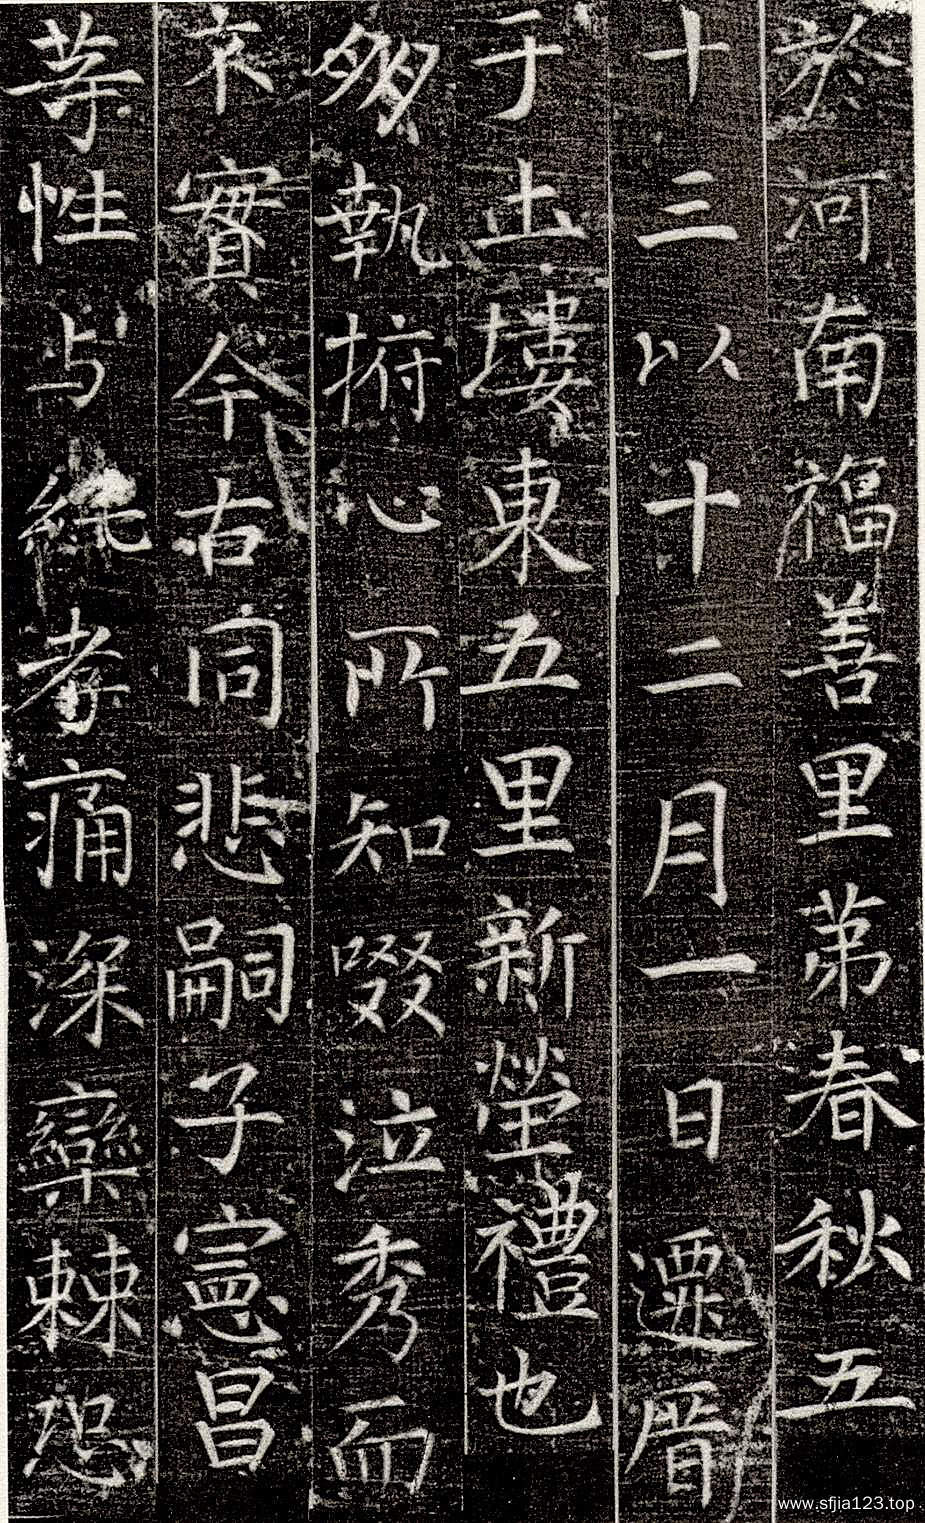 於河南福善里第春秋五
十三以十二月一日遷厝
于土塿東五里新塋禮也
朋執拊心所知啜泣秀而
不實今古同悲嗣子憲昌
等性与純孝痛深欒棘恐
www.sfjia123.top